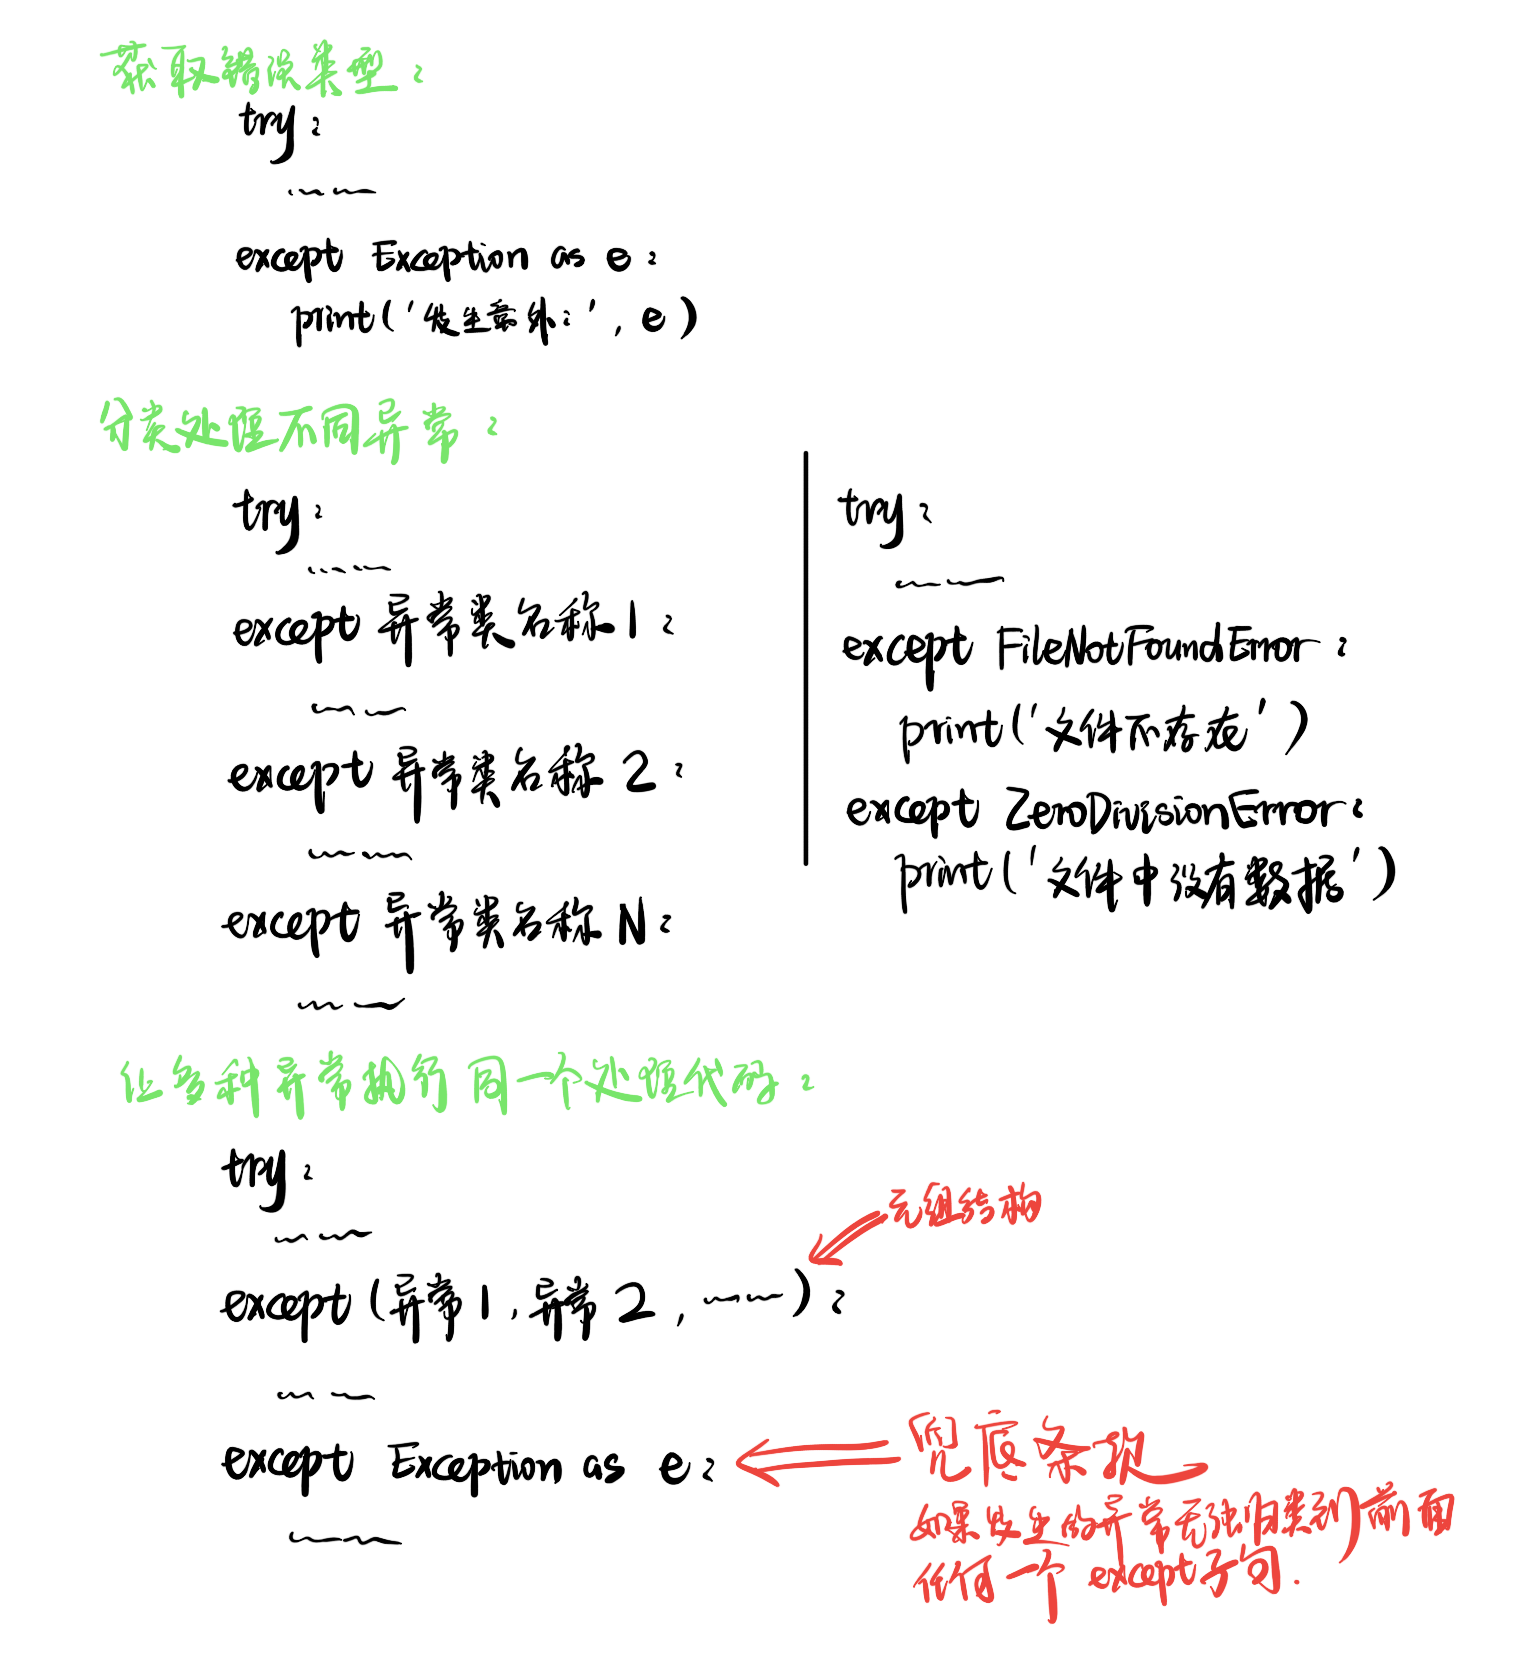 获取错误类型：
try：
……
except Exception as e：
print('发生意外：', e)
分类处理不同异常：
try：
……
except 异常类名称1：
……
except 异常类名称2：
……
except 异常类名称N：
……
try：
……
except FileNotFoundError：
print('文件不存在')
except ZeroDivisionError：
print('文件中没有数据')
让多种异常执行同一个处理代码：
try：
……
元组结构
except(异常1,异常2,……)：
……
except Exception as e：
兜底条款
如果发生的异常无法归类到前面
任何一个except子句.
……